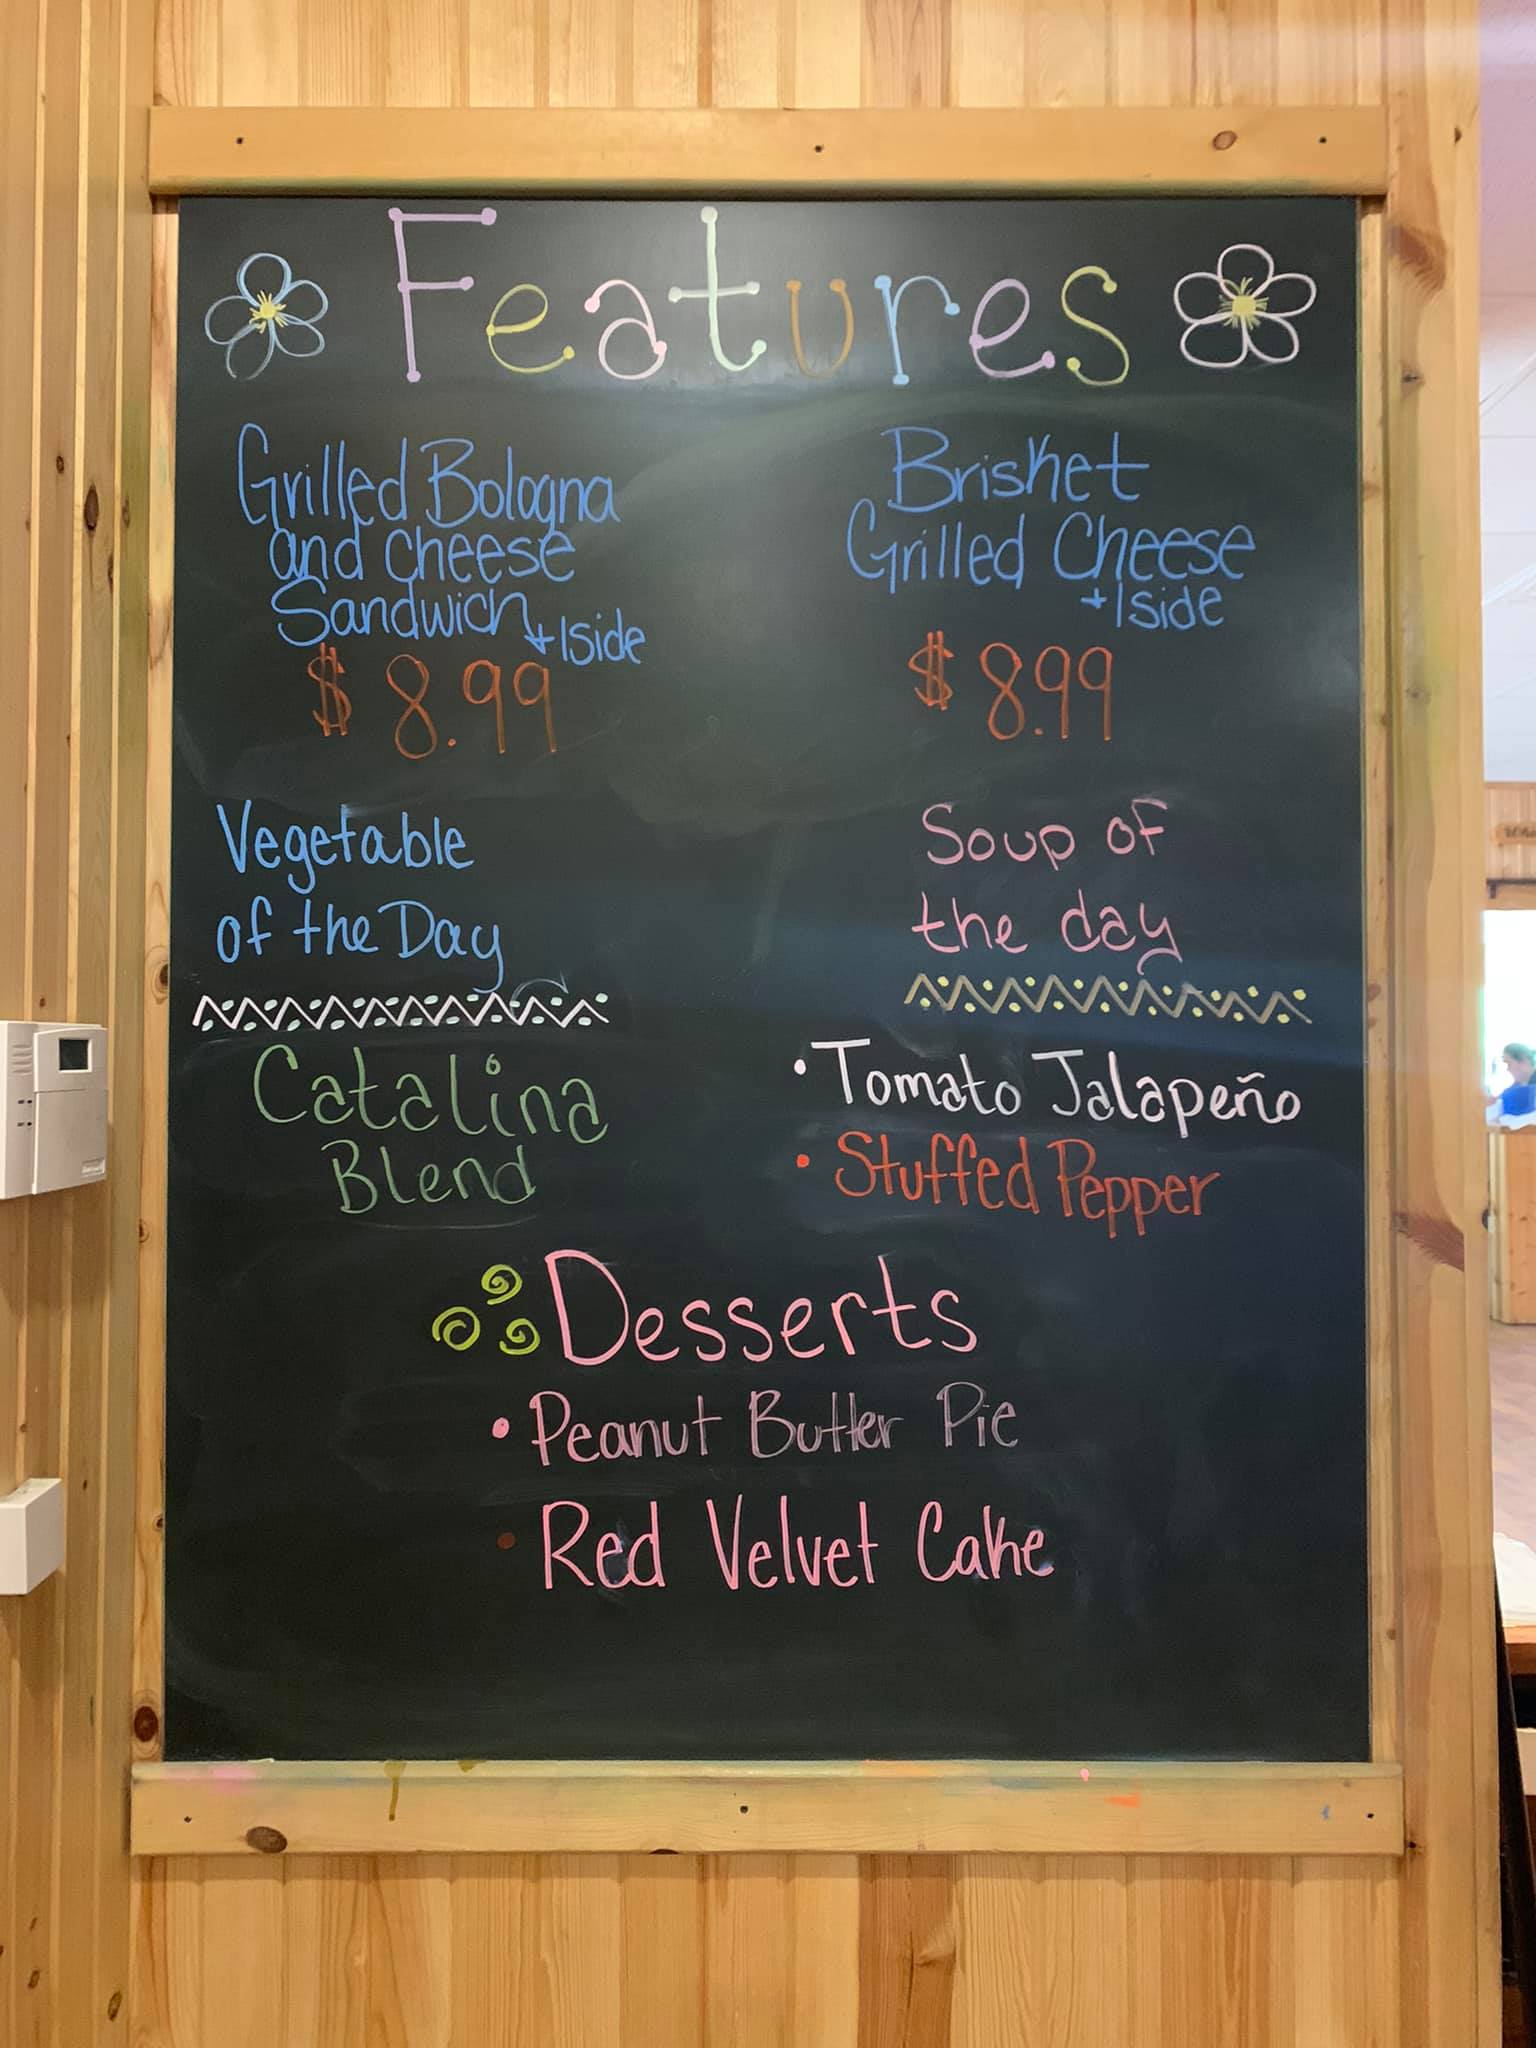 Features
Grilled Bologna
and cheese
Sandwich + 1side
$ 8.99
Brisket
Grilled Cheese
+ 1side
$ 8.99
Vegetable
of the Day
Catalina
Blend
Soup of
the day
• Tomato Jalapeño
• Stuffed Pepper
Desserts
• Peanut Butter Pie
• Red Velvet Cake